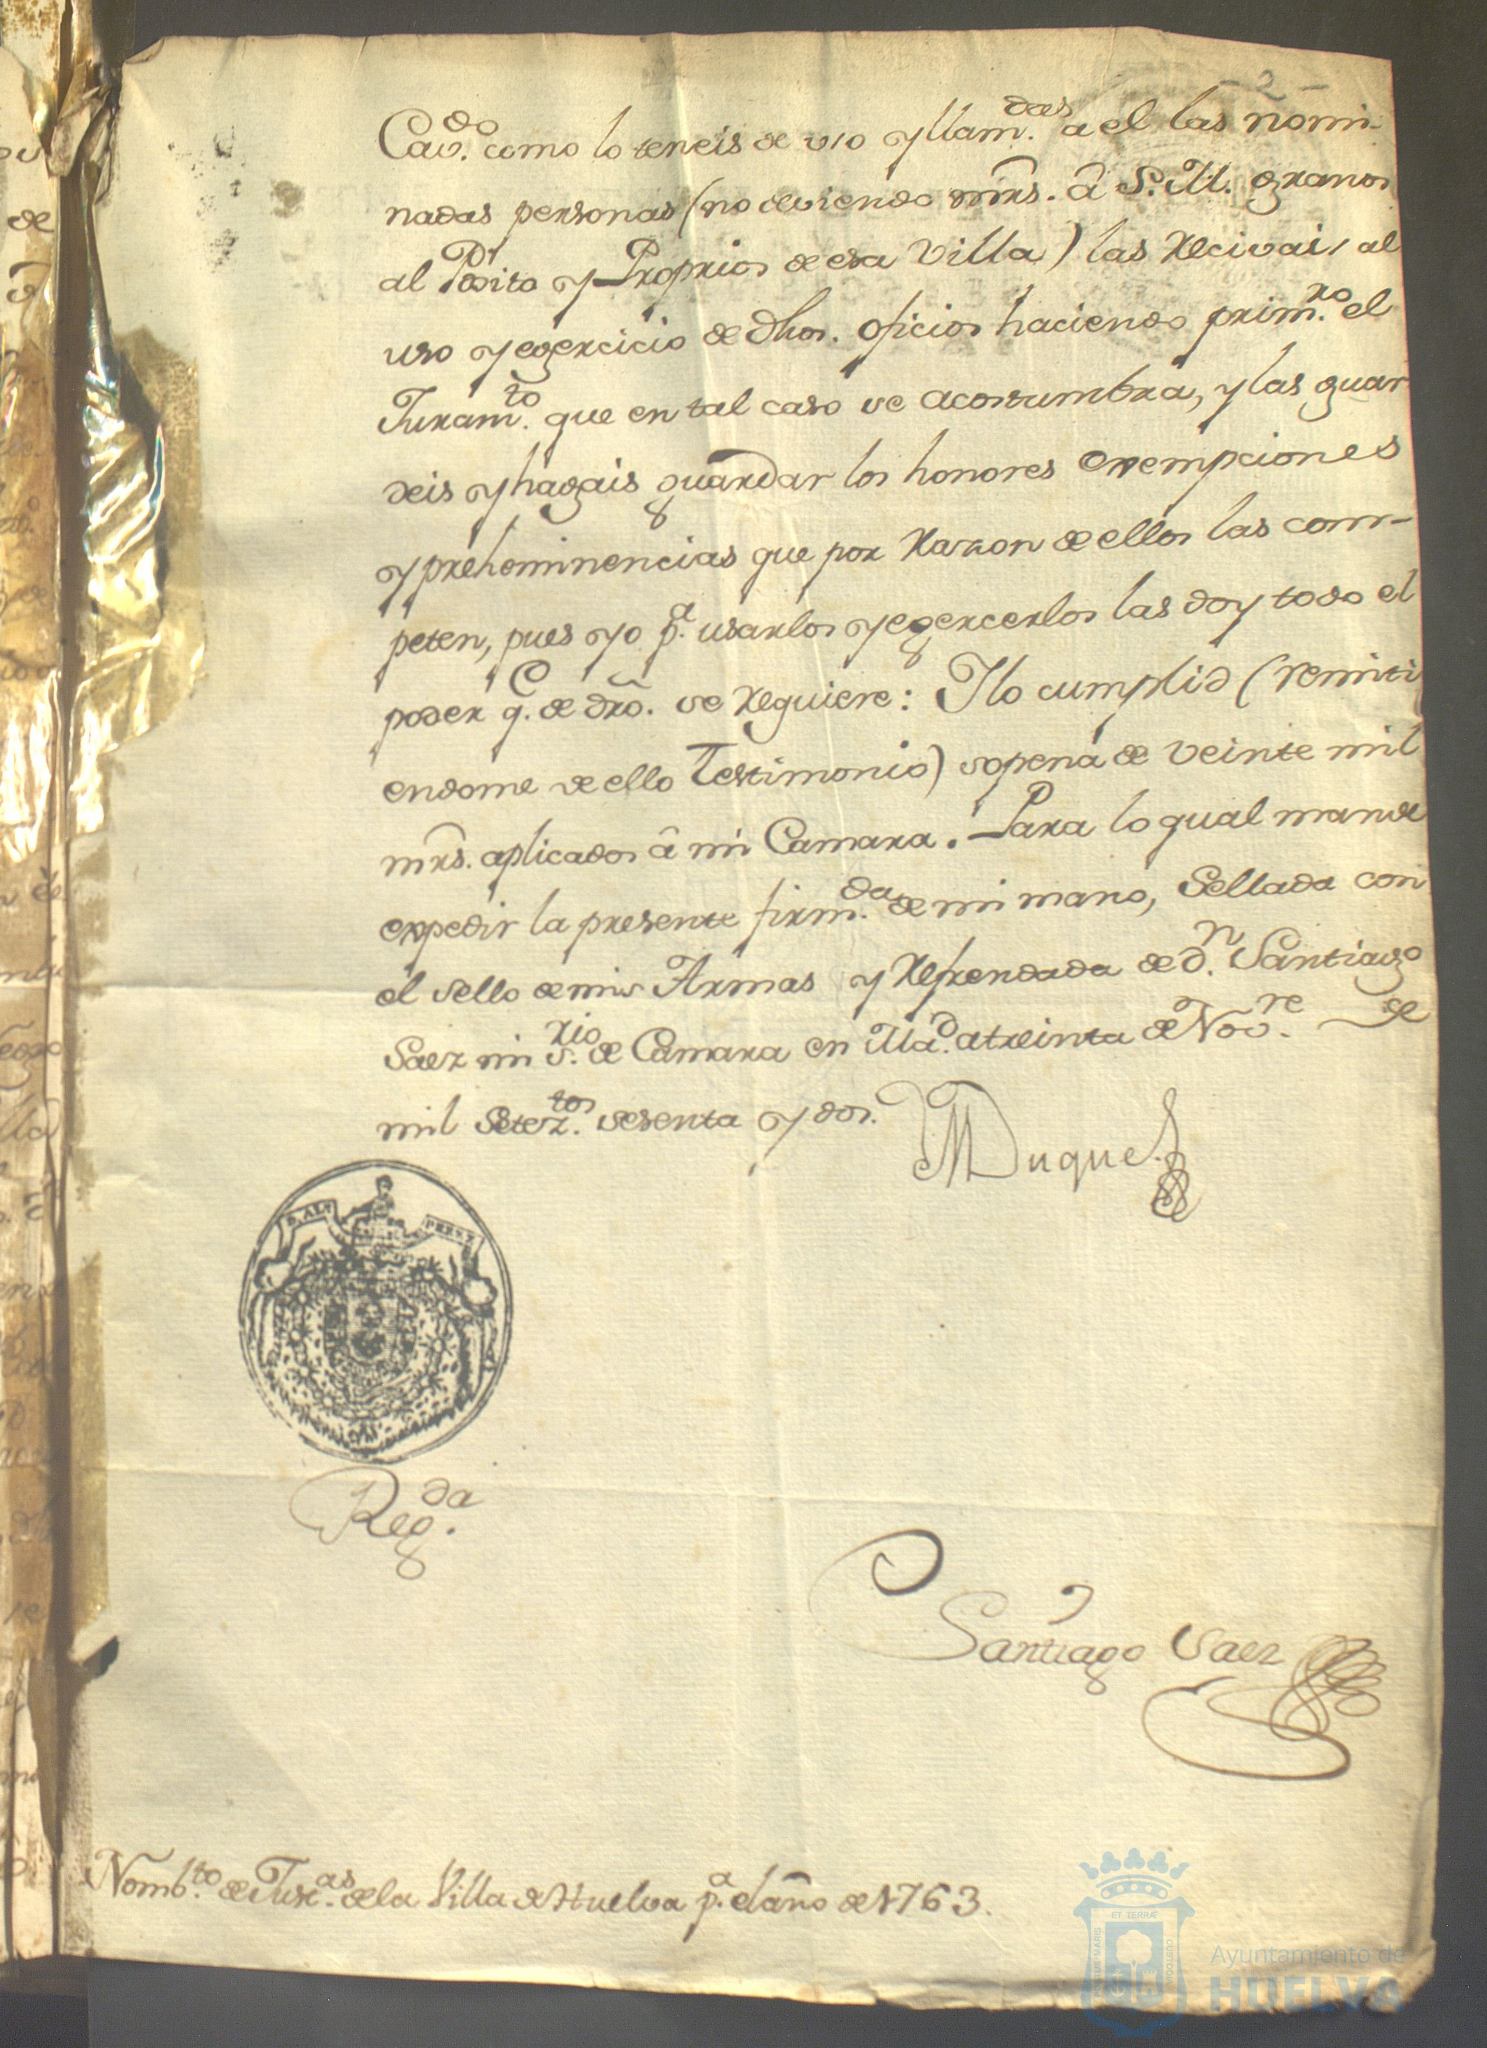 - 2 -
Cav.do como lo teneis de uso y llam.das a el las nomi-
nadas personas (no deviendo mrs. â S. M. granos
al Posito y Proprios de esa Villa) las recivais al
uso y egercicio de dhos. oficios haciendo prim.ro el
Juram.to que en tal caso se acostumbra, y las guar
deis y hagais guardar los honores exempciones
y preheminencias que por razon de ellos las com-
peten, pues yo p.a usarlos y egercerlos las doy todo el
poder q. de dro. se requiere: Ylo cumplid (remiti
endome de ello Testimonio) so pena de veinte mil
mrs. aplicados â mi Camara. Para lo qual mande
expedir la presente firm.da de mi mano, Sellada con
el sello de mis Armas y refrendada de d.n Santiago
Saez mi s.rio de Camara en Mad. a treinta de Nov.re de
mil setez.tos sesenta y dos.
Duque
D. ALº
PEREZ
Reg.da
Santiago Saez
Nomb.to de Just.as de la Villa de Huelva p.a el año de 1763.
PORTUS MARIS
ET TERRÆ
CUSTODIA
Ayuntamiento de
HUELVA